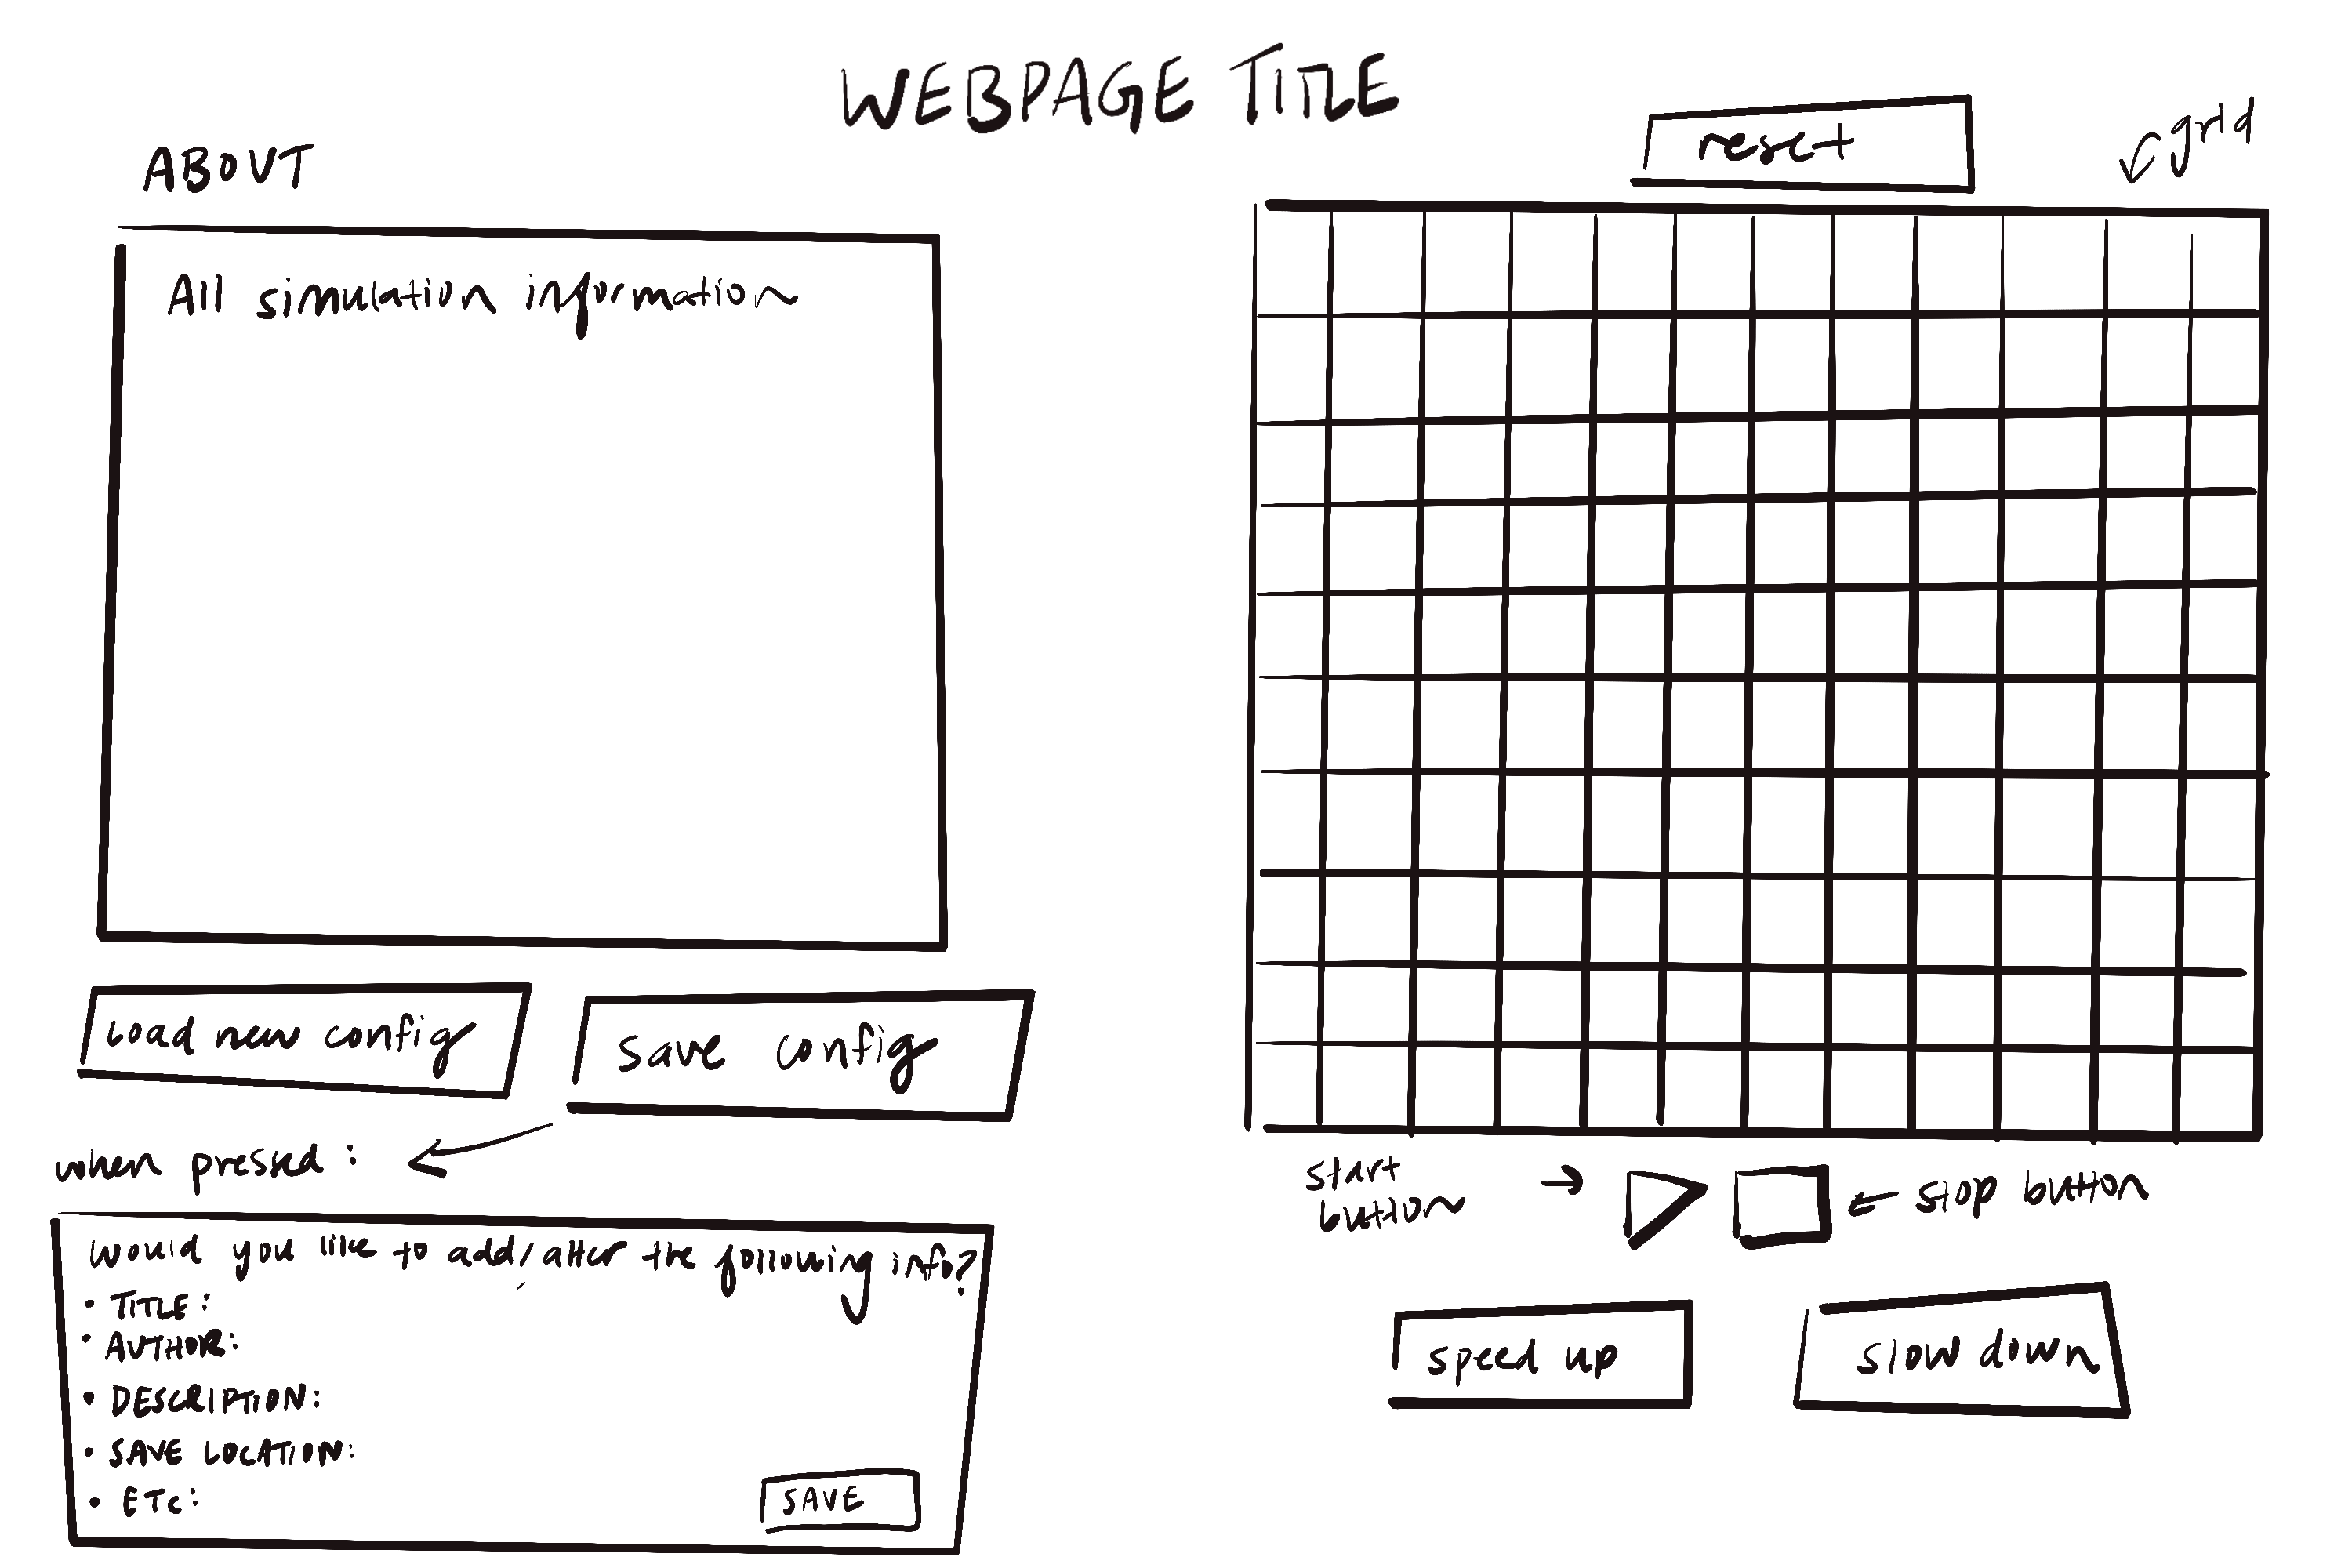 WEBPAGE TITLE
ABOUT
All simulation information
load new config
save config
when pressed:
would you like to add/alter the following info?
• TITLE:
• AUTHOR:
• DESCRIPTION:
• SAVE LOCATION:
• ETC:
SAVE
reset
grid
start
button
stop button
speed up
slow down